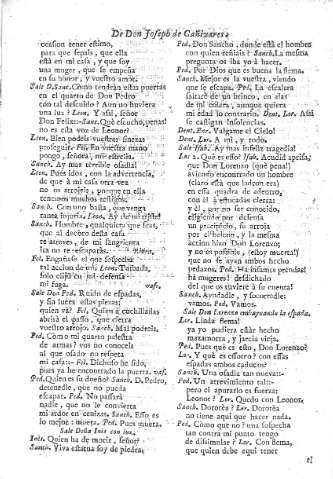 De Don Joseph de Cañizares.
ocasion tener estimo,
para que sepais, que ella
está en mi casa, y que soy
una muger, que se empeña
en su honor, y vuestro arrojo.
Sale D.Sanc. Cómo tendrán estas puertas
en el quarto de Don Pedro
con tal descuido? Aun no huviera
una luz? Leon. Y assi, señor
Don Felix. Sanc. Qué escucho, penas!
no es esta voz de Leonor?
Leon. Bien podeis vuestras finezas
proseguir. Fel. En vuestra mano
pongo, señora, mi
Sanch. Ay mas terrible osadia!
Leon. Pues idos, con la advertencia,
de que à mi casa otra vez
no os arrojeis, porque en ella
tenemos muchos testigos.
Sanch. Con uno basta, que venga
tanta injuria. Leon. Ay de mi triste!
Sanch. Hombre, qualquiera que seas,
que al decoro desta casa
te arrojas, de mi sangrienta
ira no te
Fel. Engañóse el que sospeche
tal accion de mi: Leon. Turbada,
solo elijo en mi defensa
mi fuga. vase.
Sale Don Ped. Ruido de espadas,
y sin luces estas piezas;
quien vá? Fel. Quien à cuchilladas
abrirá el passo, que cierra
vuestro arrojo. Sanch. Mal podreis.
Ped. Cómo mi quarto palestra
de armas? vos no conoceis
al que osado no respeta
mi casa? Fel. Dichoso he sido,
pues ya he encontrado la puerta. vase.
Ped. Quien es su dueño? Sanch. D. Pedro,
detenedle, que no pueda
escapar. Ped. No passará
nadie, que no le convierta
mi ardor en cenizas. Sanch. Esso es
lo mejor: muera. Ped. Pues muera.
Sale Doña Inés con luz.
Inés. Quien ha de morir, señor?
Sanch. Viva estatua soy de piedra;
Ped. Don Sancho, donde está el hombre
con quien reñiais? Sanch. La mesma
pregunta os iba yo à hacer.
Ped. Por Dios que es buena la flema.
Sanch. Mejor es la vuestra, viendo
que se escapa. Ped. La escalera
saltaré de un brinco, en alas
de mi colera, aunque quiera
mi edad lo contrario. Dent. Lor. Assi
se castigan insolencias.
Dent. Enc. Valgame el Cielo!
Dent. Lor. A mi, y todo.
Sale Isab. Ay mas infeliz tragedia!
Los 2. Qué es esso? Isab. Acudid apriessa,
que Don Lorenzo (qué pena!)
aviendo encontrado un hombre
(claro está que ladron era)
en essa quadra de adentro,
con él à estocadas cierra:
y él, por no ser conocido,
eligiendo por defensa
un precipicio, se arroja
por el balcon, y la mesma
accion hizo Don Lorenzo;
y no es possible, (estoy muerta!)
que no se ayan ambos hecho
pedazos. Ped. Ha infames prendas!
há mugeres! desdichado
del que os tuviere à su cuenta!
Sanch. Ayudadle, y socorredle:
vamos. Ped. Vamos.
Sale Don Lorenzo embaynando la espada.
Lor. Linda flema!
ya yo pudiera estár hecho
mazamorra, y jarcia vieja.
Ped. Pues qué es esto, Don Lorenzo?
Lor. Y qué es essotro? con essas
espadas ambos caducos?
Sanch. Una osadia tan nueva:-
Ped. Un atrevimiento tal:-
pero el apurarlo es fuerza:
Leonor? Lor. Quedo con Leonor.
Sanch. Dorotéa? Lor. Dorotéa
no tiene aqui que hacer nada.
Ped. Cómo que no? una sospecha
tan contra mi punto, tengo
de disimular? Lor. Con flema,
que quien debe aqui tener
el